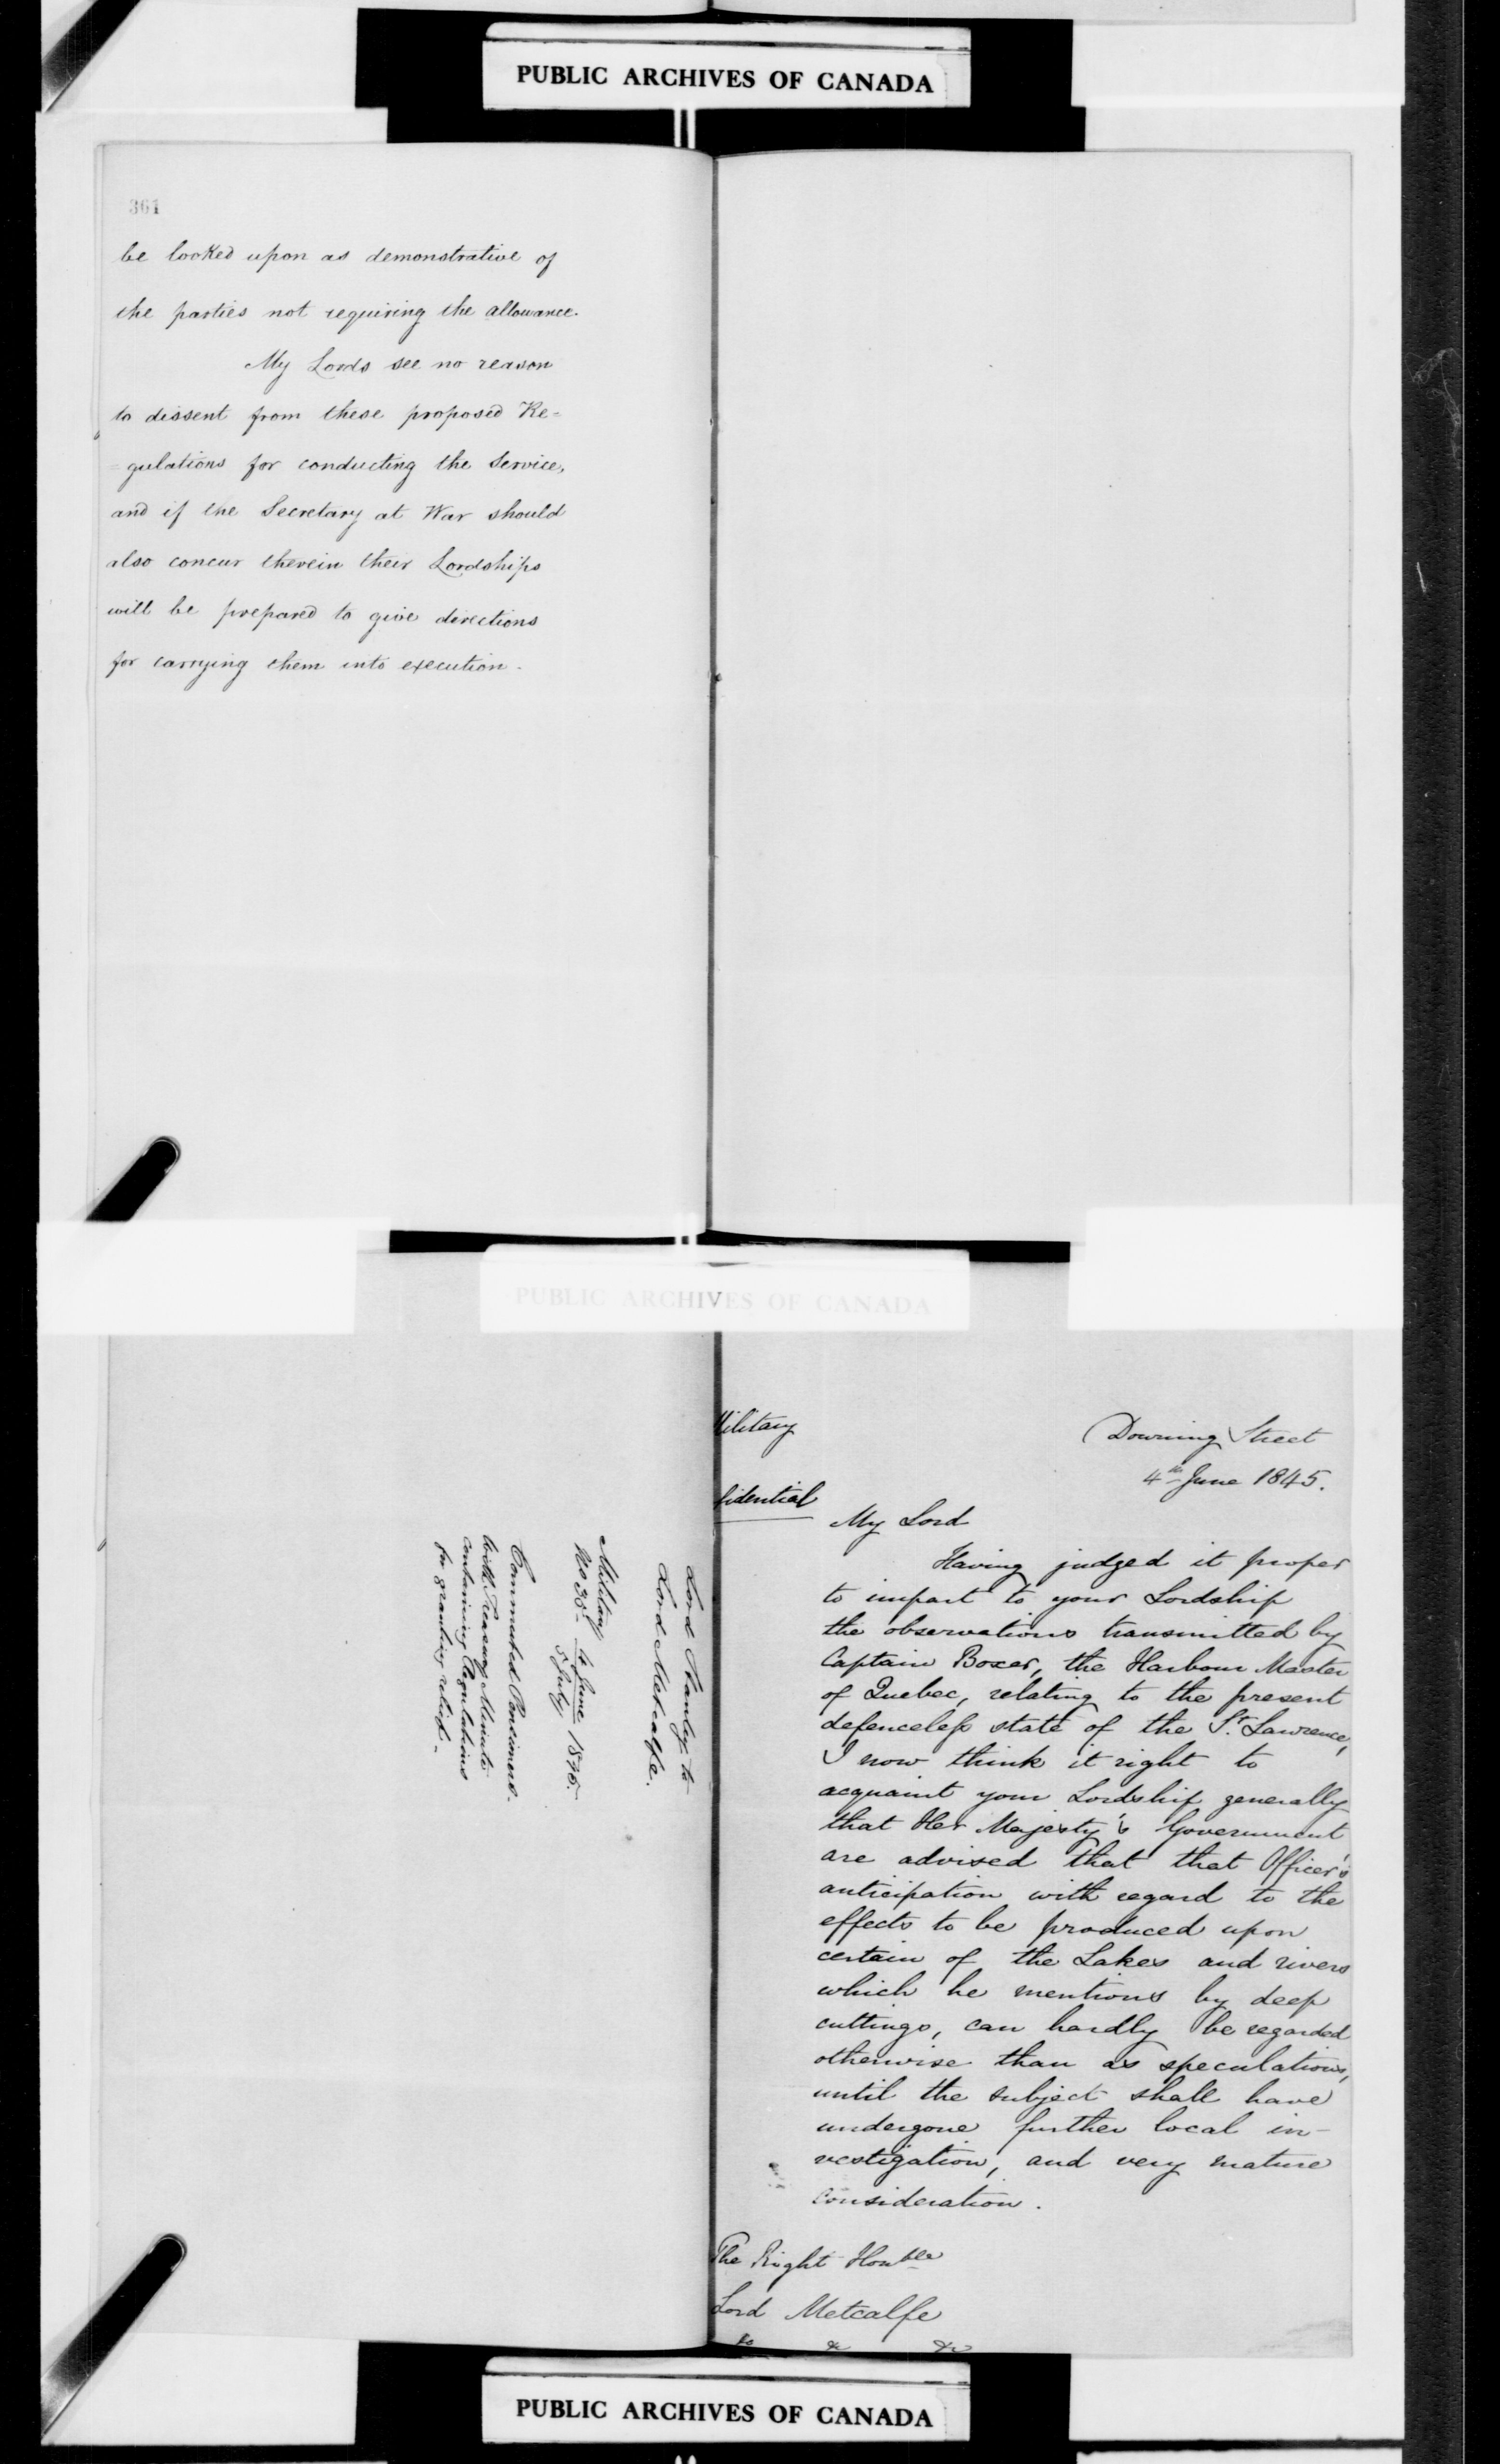 PUBLIC ARCHIVES OF CANADA
361
be looked upon as demonstrative of
the parties not requiring the allowance.
My Lords see no reason
to dissent from these proposed Re=
=gulations for conducting the Service,
and if the Secretary at War should
also concur therein their Lordships
will be prepared to give directions
for carrying them into execution.
PUBLIC ARCHIVES OF CANADA
Lord Stanley to
Lord Metcalfe.
Military
No 30. 4 June 1845.
5 July
Commuted Pensioners.
With Treasury Minute
containing Regulations
for granting relief.
Military
fidential
Downing Street
4th June 1845.
My Lord
Having judged it proper
to impart to your Lordship
the observations transmitted by
Captain Boxer, the Harbour Master
of Quebec, relating to the present
defenceless state of the St. Lawrence,
I now think it right to
acquaint your Lordship generally
that Her Majesty's Government
are advised that that Officer's
anticipation with regard to the
effects to be produced upon
certain of the Lakes and rivers
which he mentions by deep
cuttings, can hardly be regarded
otherwise than as speculations,
until the subject shall have
undergone further local in-
vestigation, and very mature
consideration.
The Right Honble
Lord Metcalfe
&c &c &c
PUBLIC ARCHIVES OF CANADA